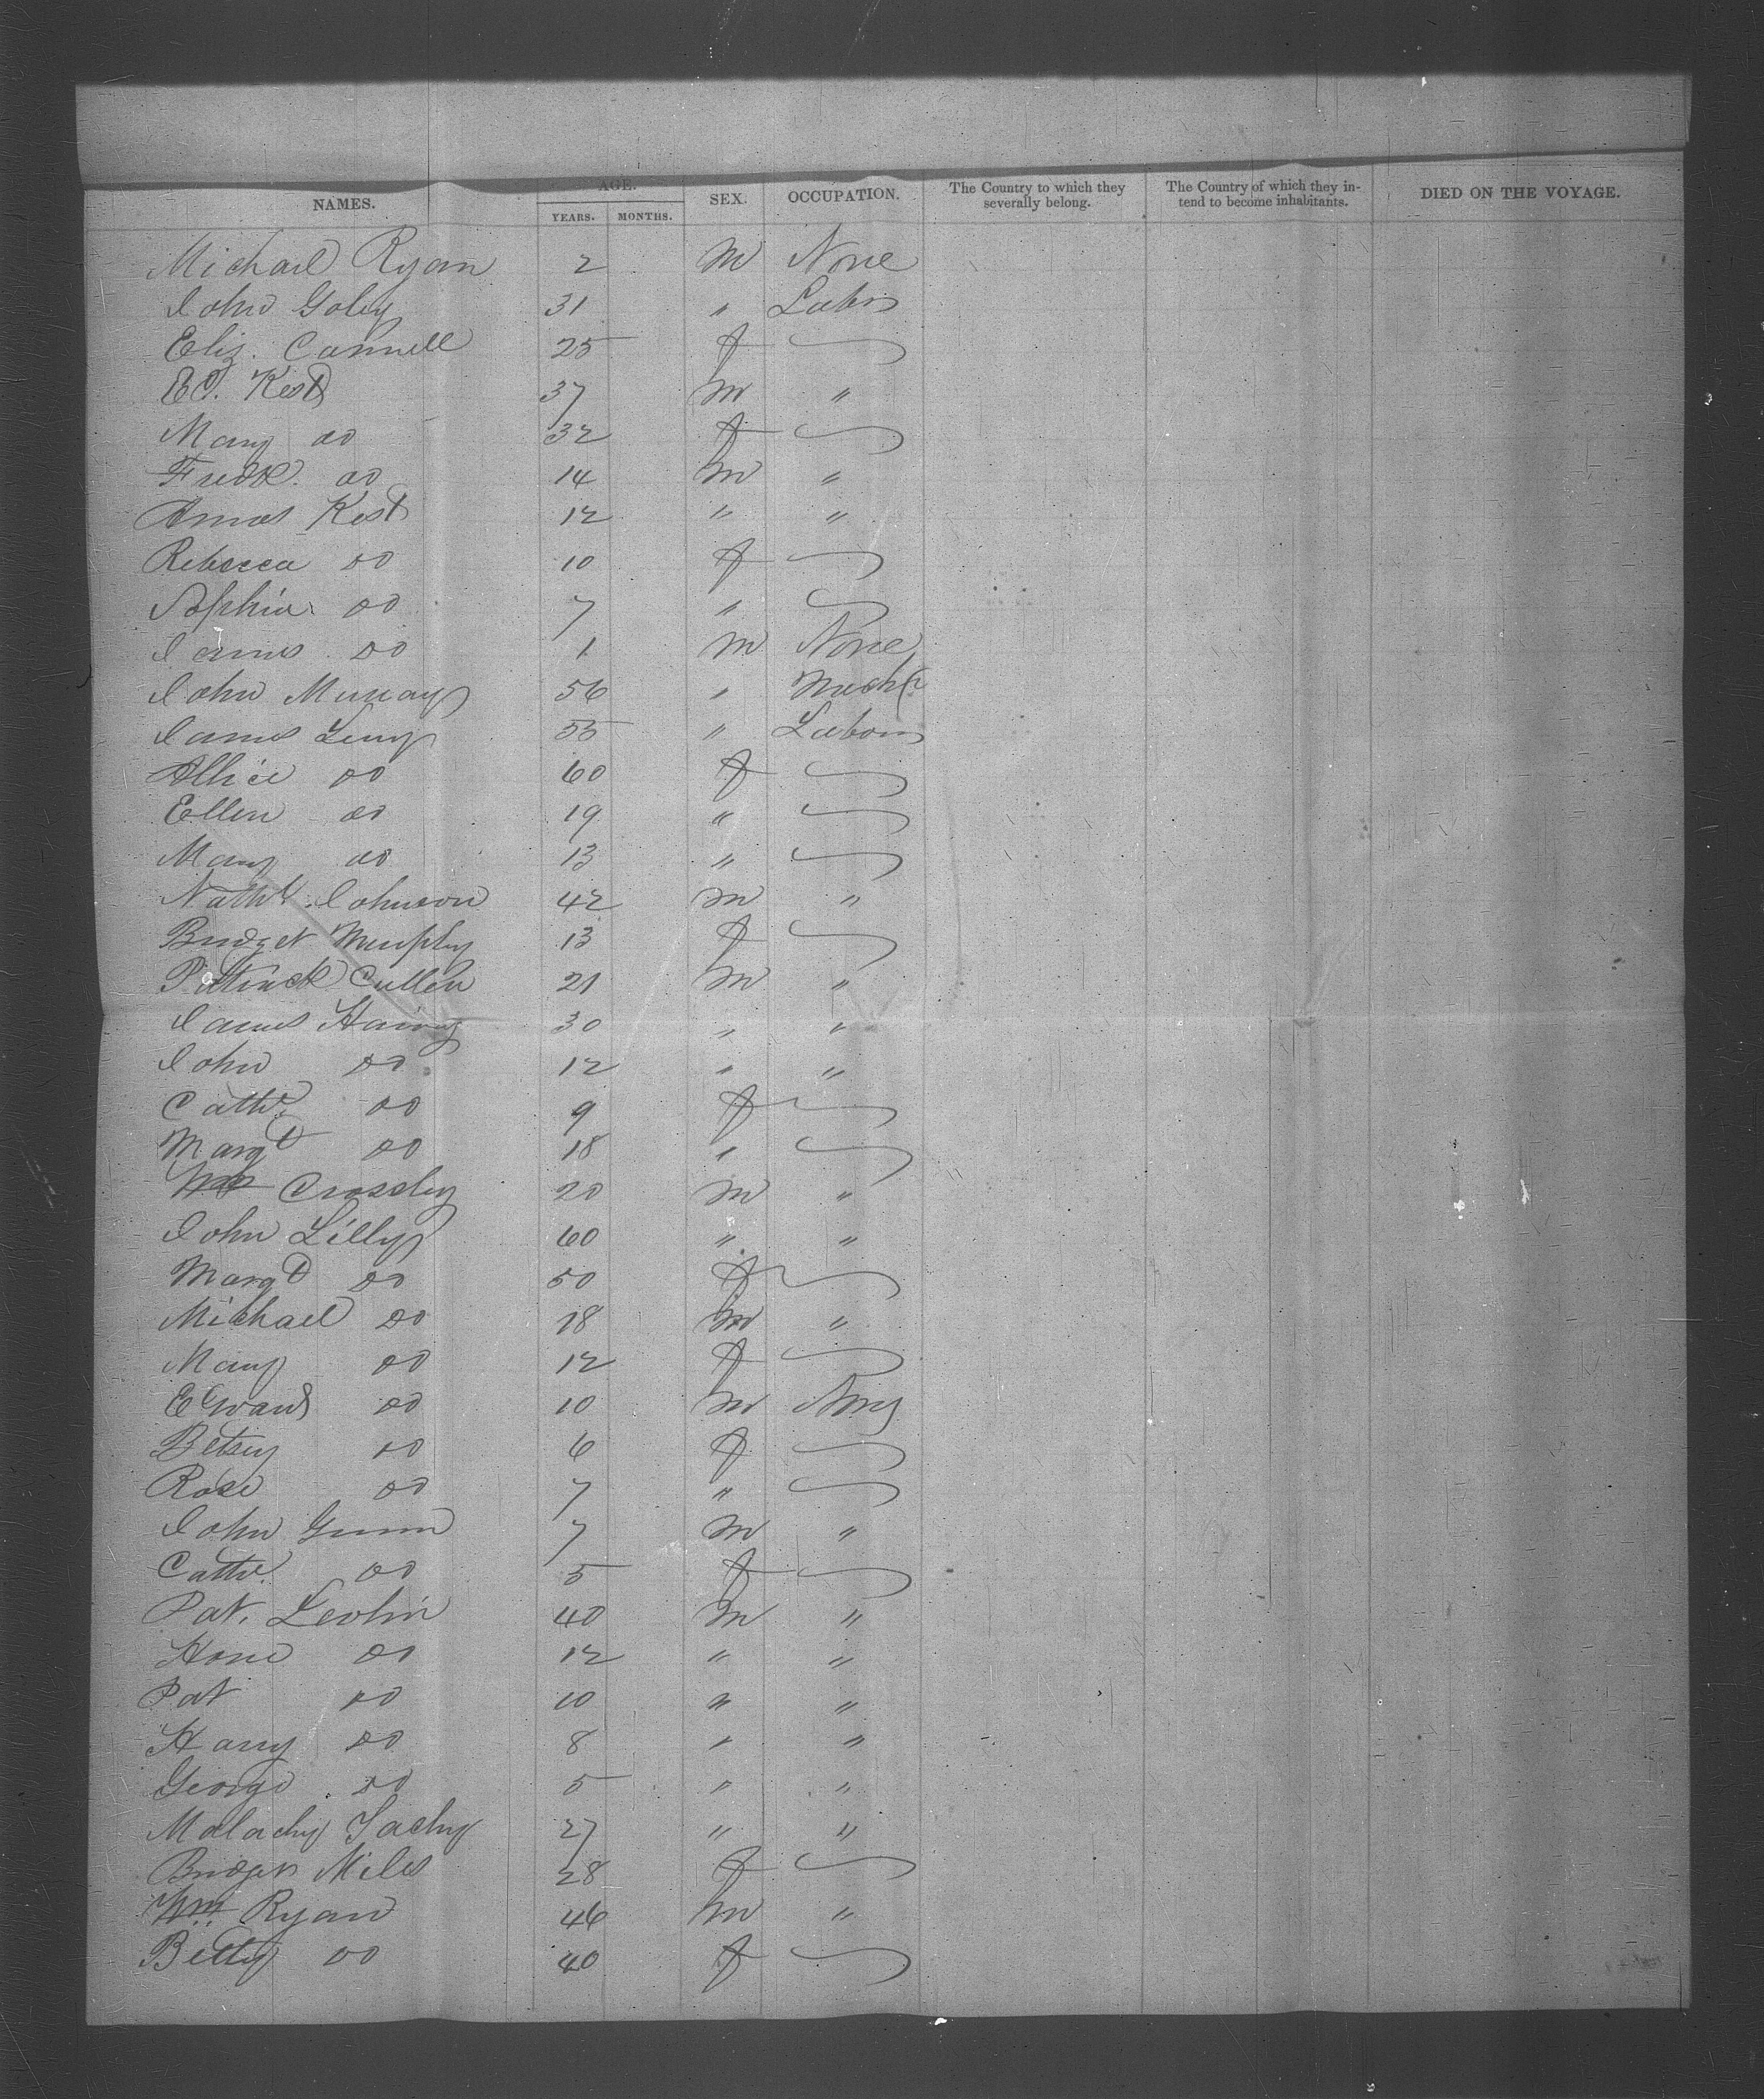 NAMES. AGE. SEX. OCCUPATION. The Country to which they severally belong. The Country of which they intend to become inhabitants. DIED ON THE VOYAGE.
YEARS. MONTHS.
Michael Ryan 2 M None
John Goley 31 " Labr
Eliz. Cannell 25 f
Ed. Kest 37 M "
Mary do 32 f
Fredk. do 14 M "
Amos Kest 12 " "
Rebecca do 10 f
Sophia do 7 "
James do 1 M None
John Murray 56 "
James Leny 55 " Labour
Allice do 60 f
Ellen do 19 "
Mary do 13 "
Nathl. Johnson 42 M "
Bridget Murphy 13 f
Patrick Cullen 21 M "
James 30 " "
John do 12 " "
Cathe. do 9 f
Margt do 18 "
Wm Crossley 20 M "
John Lilly 60 " "
Margt do 50 f
Michael do 18 M "
Mary do 12 f
Edward do 10 M
Betsey do 6 f
Rose do 7 "
John Gunn 7 M "
Cathe. do 5 f
Pat. 40 M "
do 12 " "
Pat do 10 " "
Harry do 8 " "
George do 5 " "
Malachy 27 " "
Bridget Miles 28 f
Wm. Ryan 46 M "
Betty do 40 f